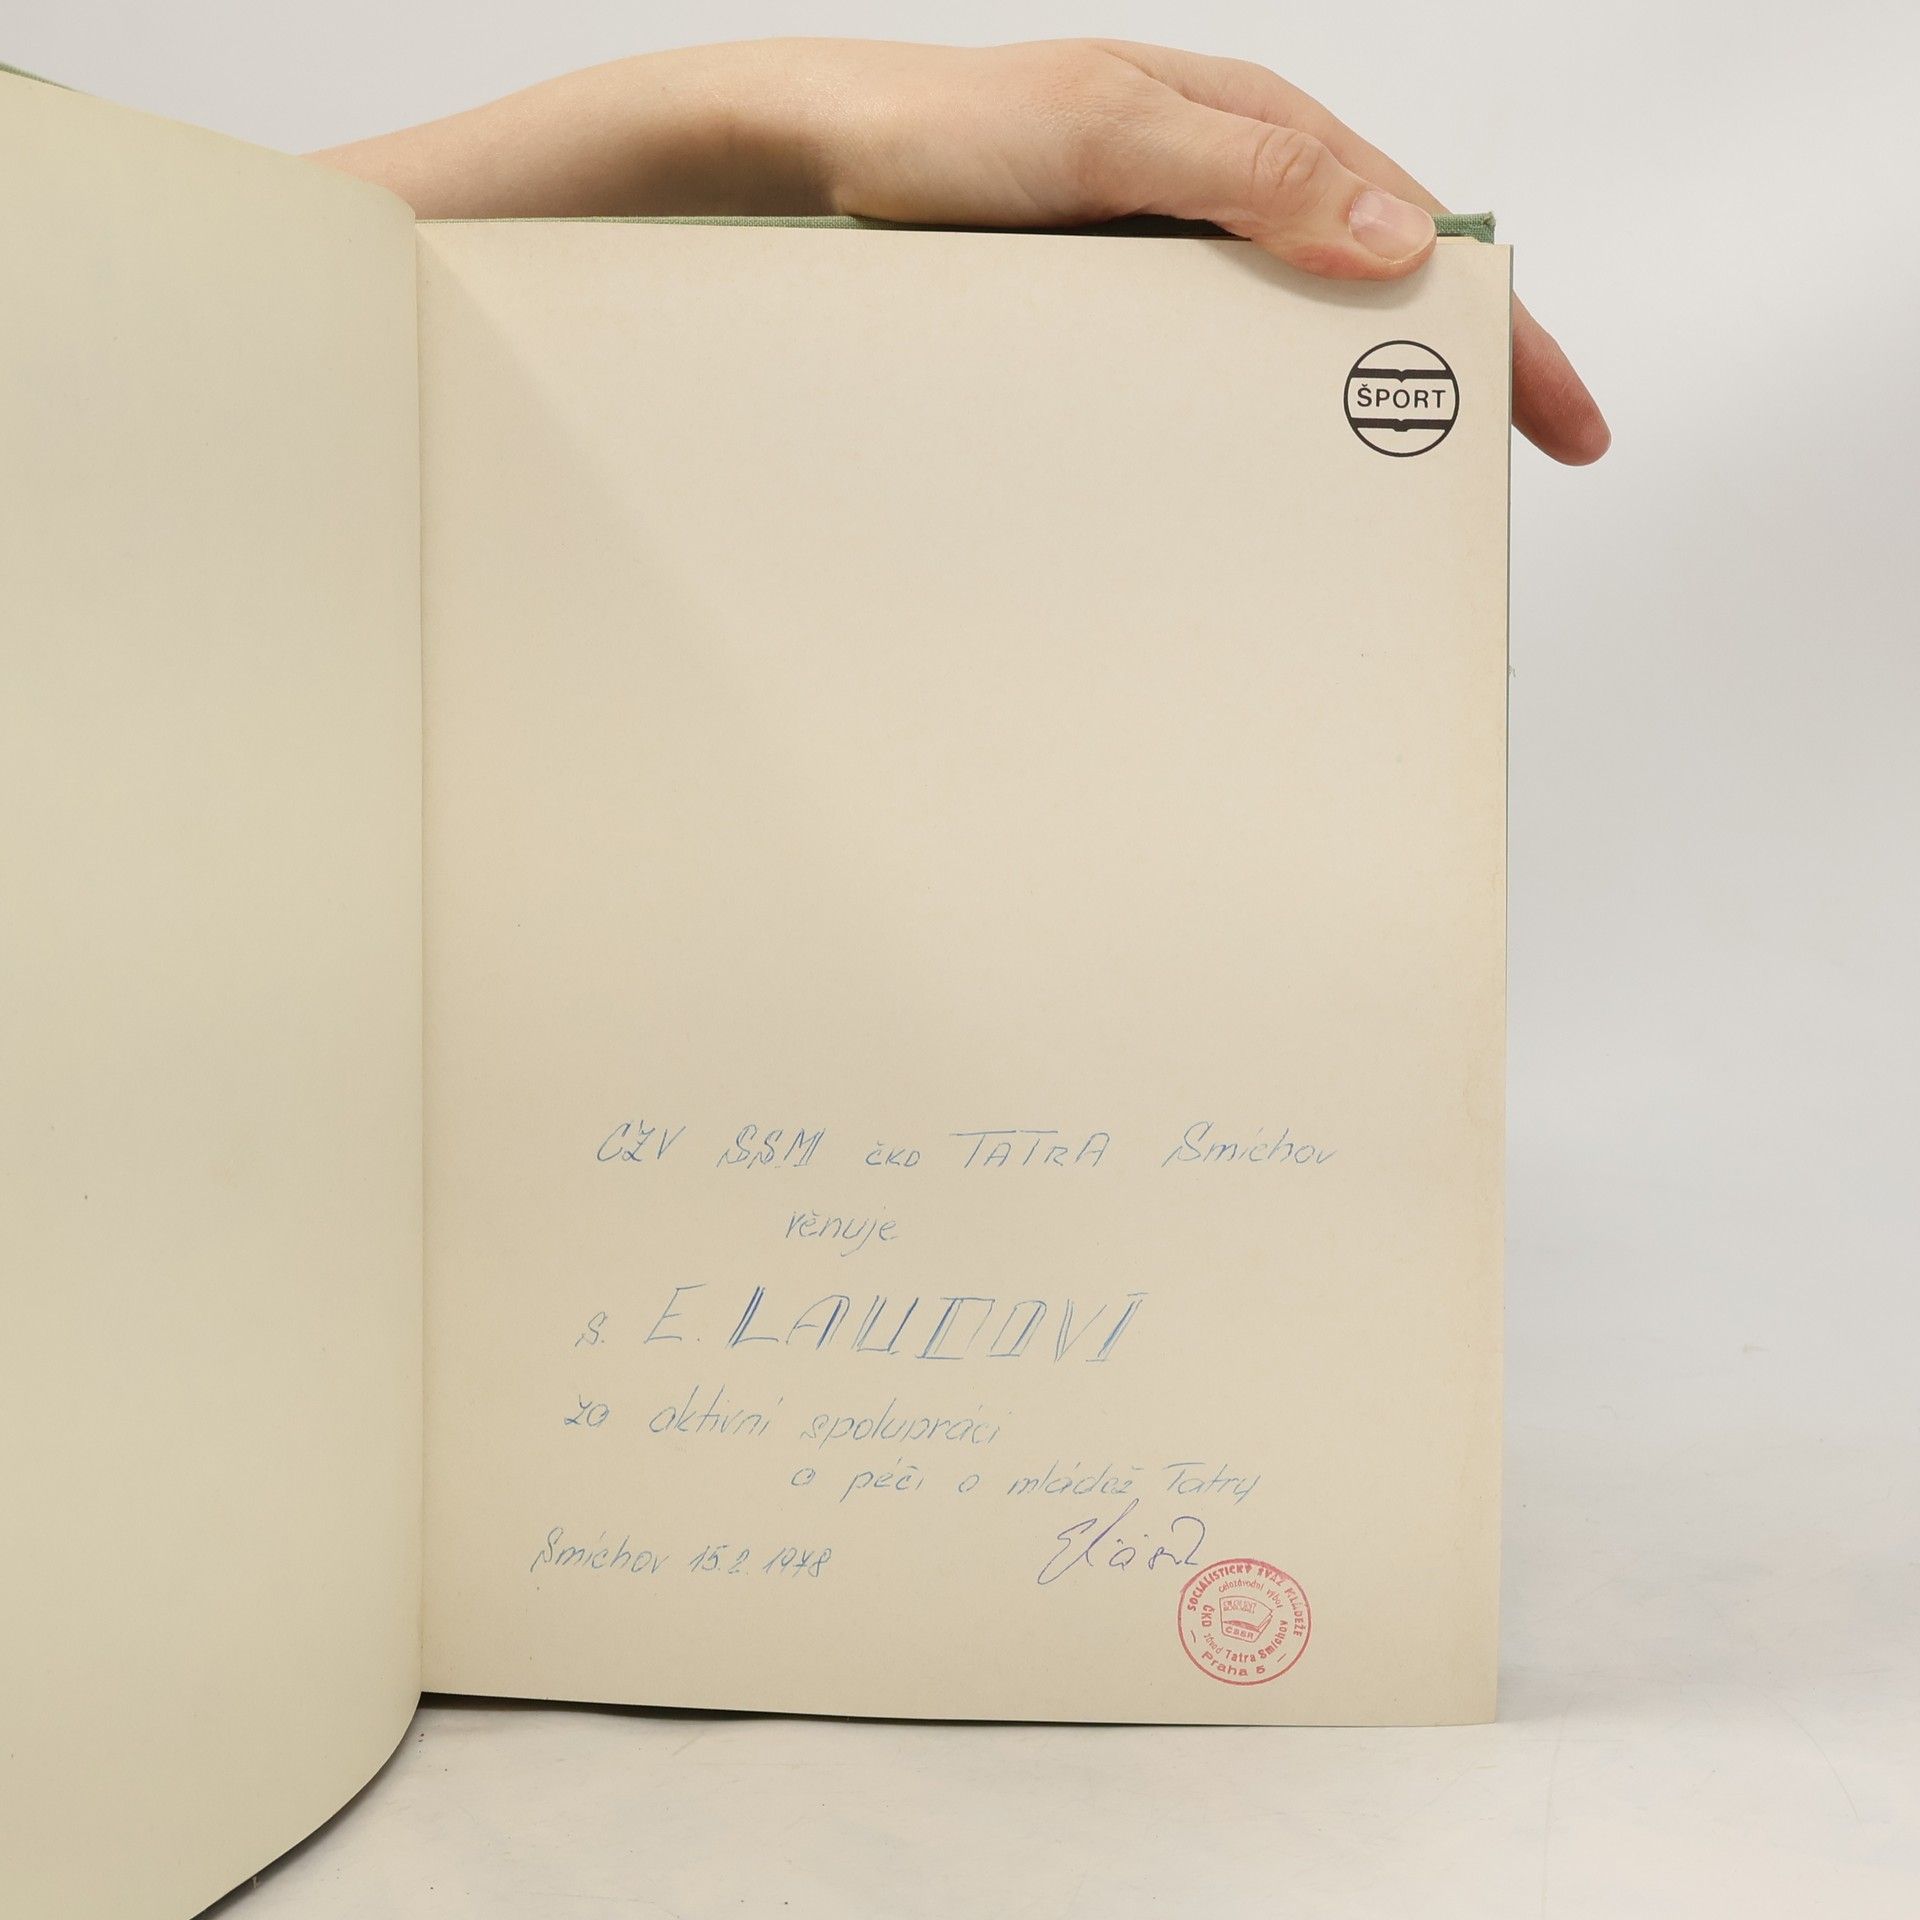 ŠPORT
CZV SSM ČKD TATRA Smíchov
věnuje
s. E. LAUDOVI
za aktivní spolupráci
a péči o mládež Tatry
Smíchov 15.2.1978
SOCIALISTICKÝ SVAZ MLÁDEŽE
celozávodní výbor
SSM
ČSSR
ČKD závod Tatra Smíchov
— Praha 5 —